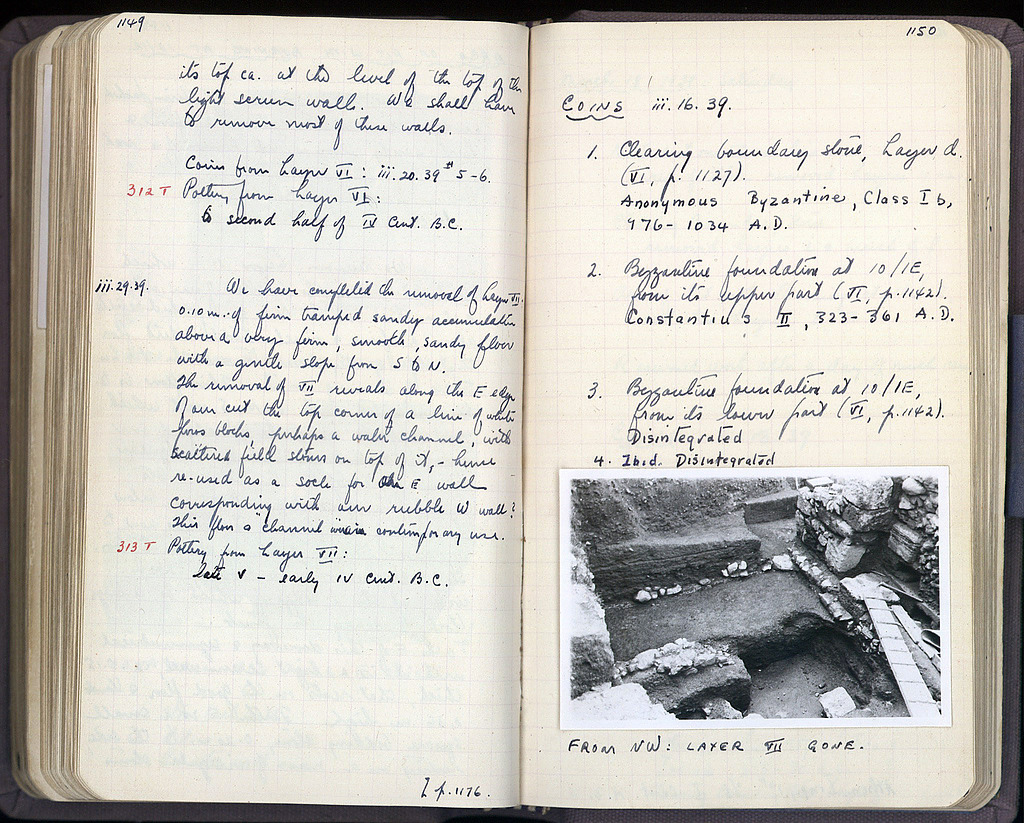 1149
its top ca. at the level of the top of the
light screen walls. We shall have
to remove most of these walls.
Coins from Layer VI: iii.20.39 # 5-6.
312 T Pottery from Layer VI:
to second half of IV Cent. B.C.
iii.29.39. We have completed the removal of Layer VII.
0.10 m. of firm tramped sandy accumulation
above a very firm, smooth, sandy floor
with a gentle slope from S to N.
The removal of VII reveals along the E edge
of our cut the top corner of a line of white
poros blocks, perhaps a water channel, with
scattered field stones on top of it, - hence
re-used as a socle for E wall
corresponding with our rubble W wall?
This floor a channel were in contemporary use.
313 T Pottery from Layer VII:
late V - early IV Cent. B.C.
p. 1176.
1150
COINS iii.16.39.
1. Clearing boundary stone, Layer d.
(VI, p. 1127).
Anonymous Byzantine, Class I b,
976-1034 A.D.
2. Byzantine foundation at 10/IE,
from its upper part (VI, p.1142).
Constantius II, 323-361 A.D.
3. Byzantine foundation at 10/IE,
from its lower part (VI, p.1142).
Disintegrated
4. Ibid. Disintegrated
FROM NW: LAYER VII GONE.